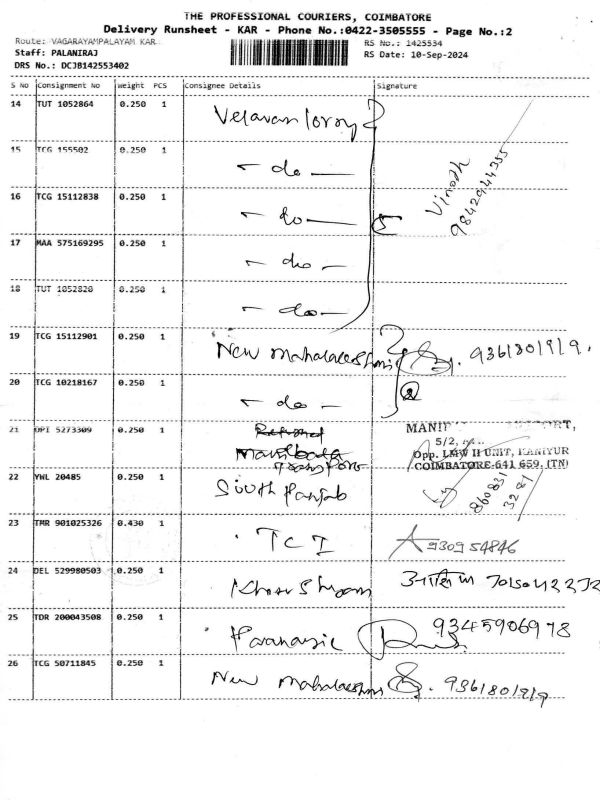 THE PROFESSIONAL COURIERS, COIMBATORE
Delivery Runsheet - KAR - Phone No.:0422-3505555 - Page No.:2
Route: VAGARAYAMPALAYAM KAR
RS No.: 1425534
Staff: PALANIRAJ
RS Date: 10-Sep-2024
DRS No.: DCJB142553402
S No Consignment No Weight PCS Consignee Details Signature
14 TUT 1052864 0.250 1 Velavan lorry
15 TCG 155502 0.250 1 - do -
Vinodh
9842944355
16 TCG 15112838 0.250 1 - do - 5
17 MAA 575169295 0.250 1 - do -
18 TUT 1052820 0.250 1 - do -
19 TCG 15112901 0.250 1 New mahalakshmi 9361801919.
20 TCG 10218167 0.250 1 - do - 2
21 OPI 5273309 0.250 1
MANIF PORT,
5/2,
Opp. LMW II UNIT, KANIYUR
COIMBATORE-641 659. (TN)
22 YWL 20485 0.250 1 South Panjab
860831
3281
23 TMR 901025326 0.430 1 TCI 930954846
24 DEL 529980503 0.250 1 Khater Shyam
25 TDR 200043508 0.250 1 9345906978
26 TCG 50711845 0.250 1 New mahalakshmi 9361801919